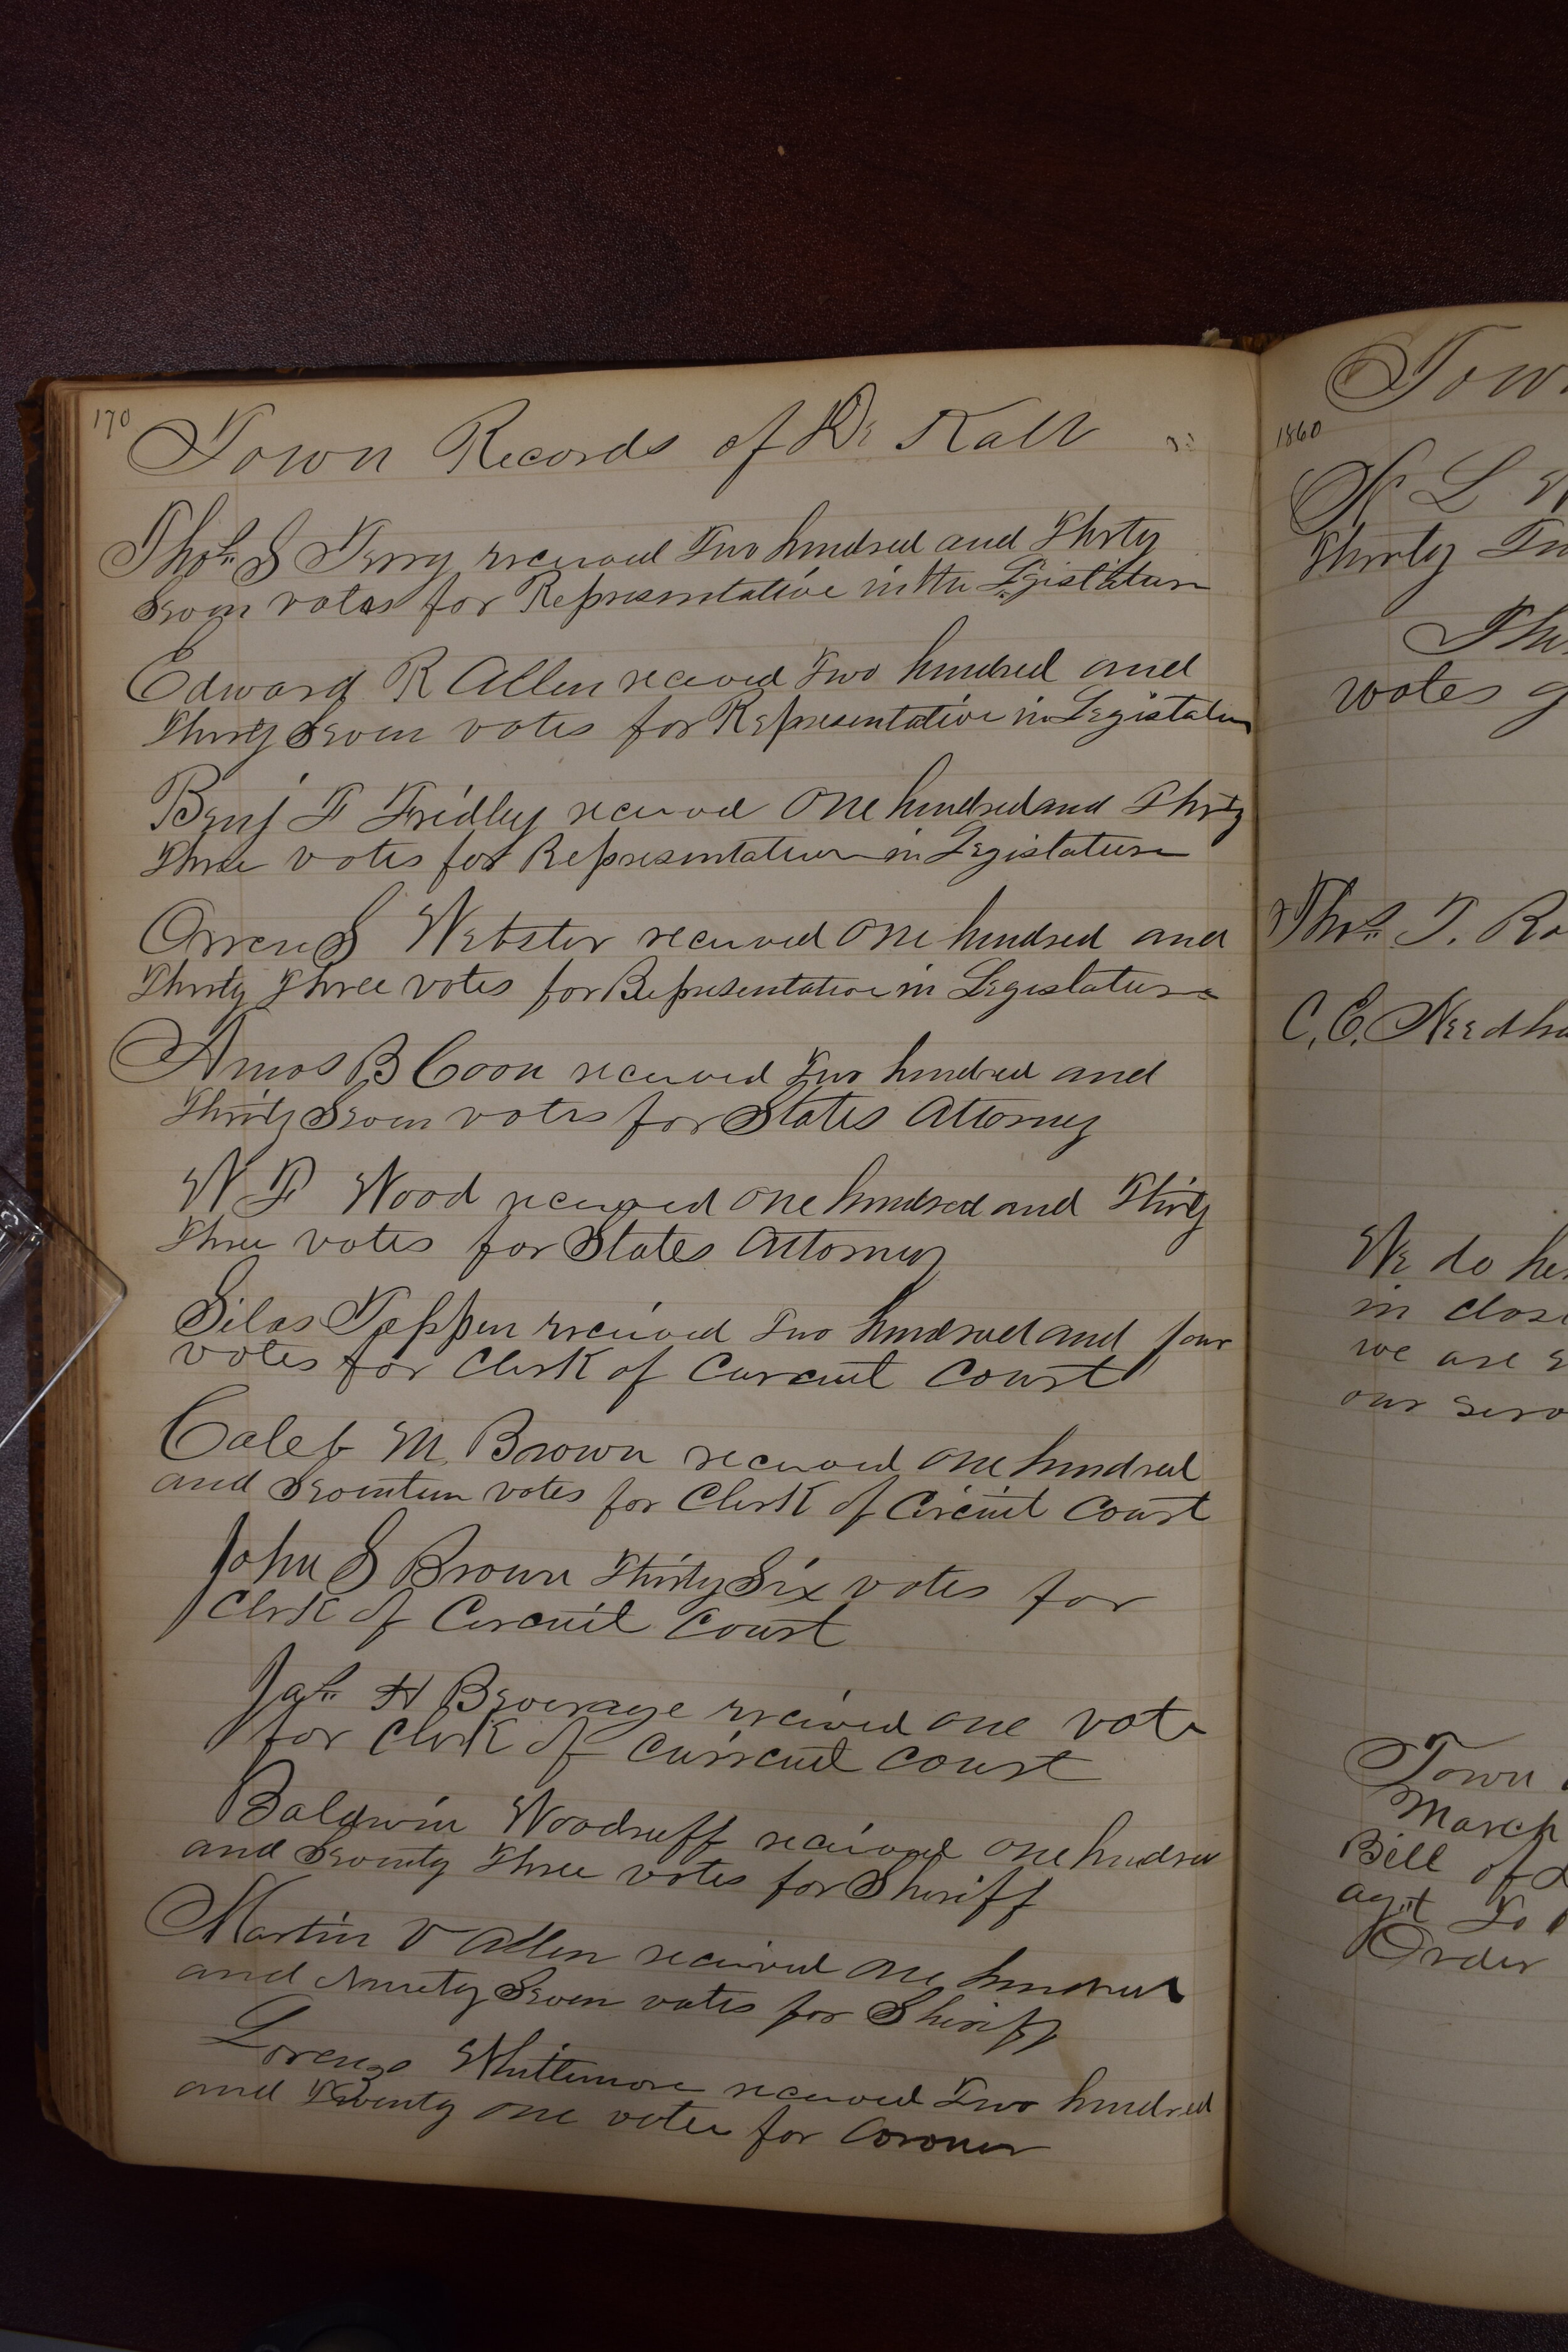 170
Town Records of De Kalb
Thos. S Terry received Two hundred and Thirty
Seven votes for Representative in the Legislature
Edward R Allen received Two hundred and
Thirty Seven votes for Representative in Legislature
Benj F Fridley received One hundred and Thirty
Three votes for Representative in Legislature
Orren S Webster received One hundred and
Thirty Three votes for Representative in Legislature
Amos B Coon received Two hundred and
Thirty Seven votes for States Attorney
W F Wood received One hundred and Thirty
Three votes for States Attorney
Silas Tappen received Two hundred and four
votes for Clerk of Curcuit Court
Caleb M. Brown received One hundred
and Seventeen votes for Clerk of Circuit Court
John S Brown Thirty Six votes for
Clerk of Circuit Court
Jas. H Beverage received one vote
for Clerk of Curcuit Court
Baldwin Woodruff received One hundred
and Seventy Three votes for Sheriff
Martin V Allen received One hundred
and Ninety Seven votes for Sheriff
Lorenzo Whittemore received Two hundred
and Twenty one votes for Coroner
Tow
1860
L
Thirty
votes
Thos. T. Ro
C. E. Needha
We do he
in close
we are
our serv
Town
March
Bill of
agst To
Order